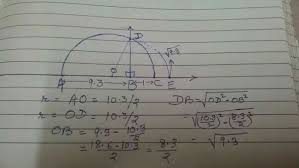 D
√9.3
O
A 9.3 B 1 C E
r = AO = 10.3/2
r = OD = 10.3/2
OB = 9.3 - 10.3/2
= 18.6-10.3/2 = 8.3/2
DB = √OD²-OB²
√(10.3/2)²-(8.3/2)²
= √9.3